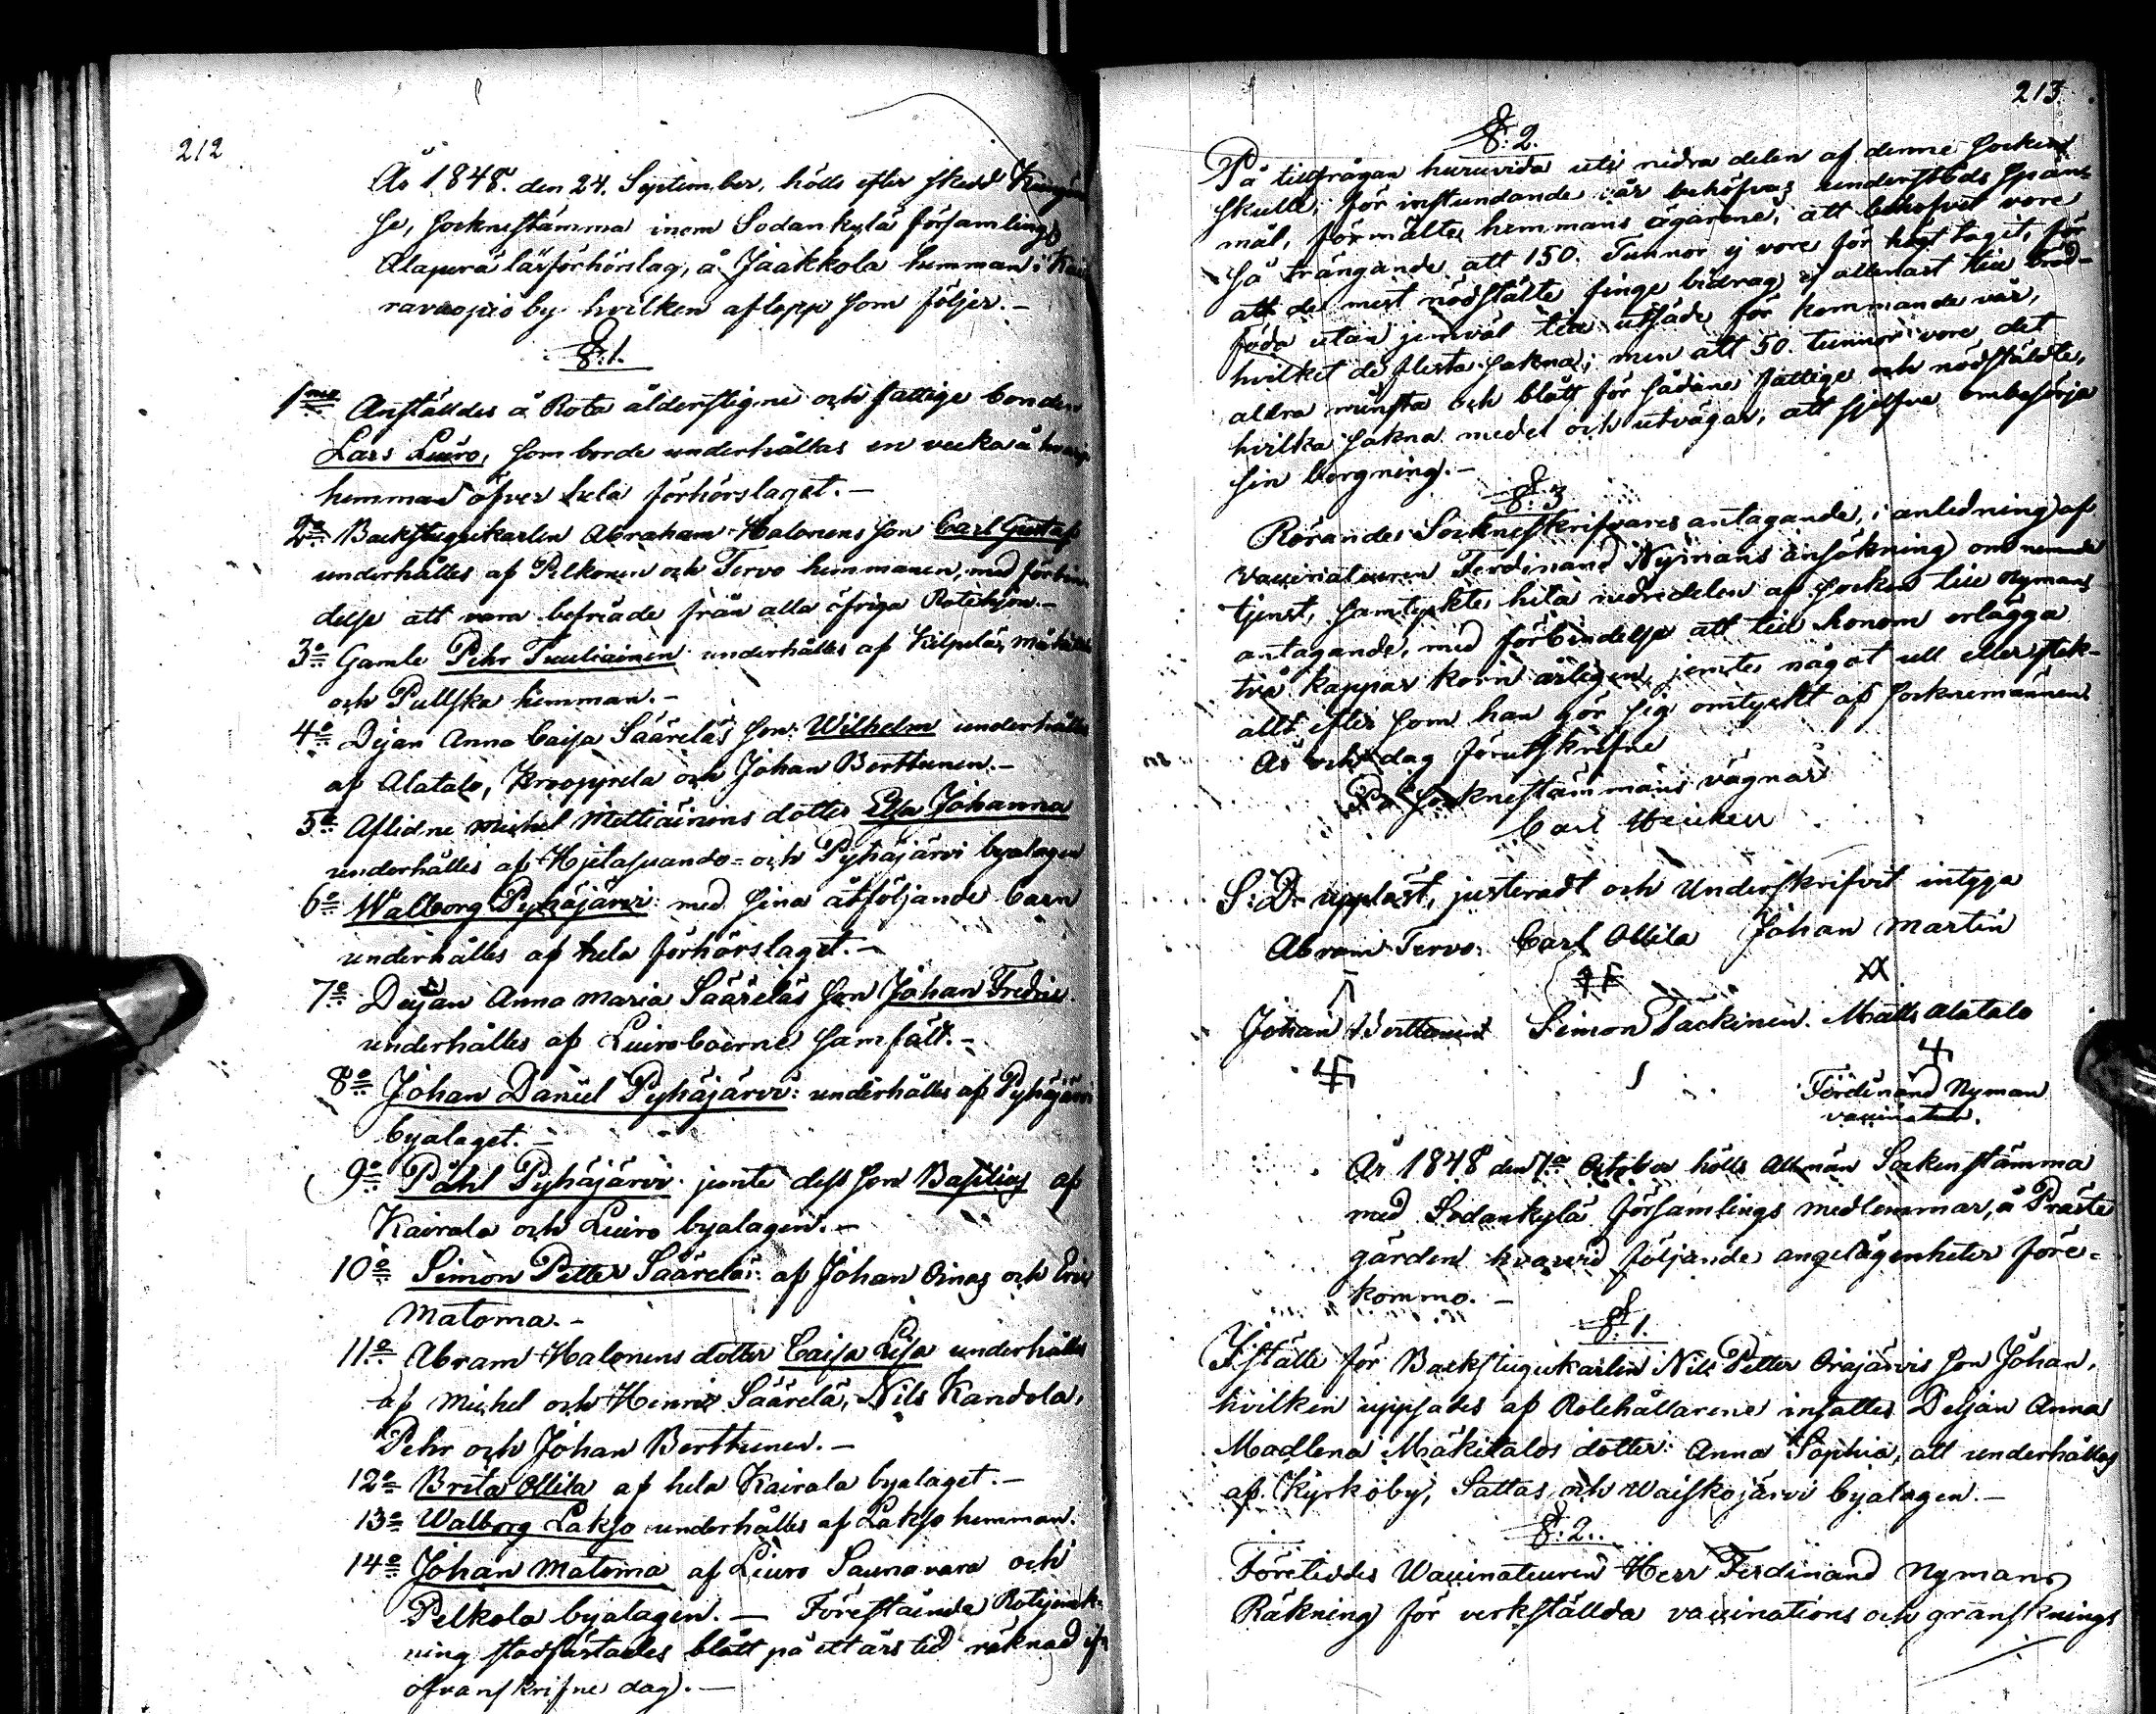 212
År 1848. den 24. September, hölls efter skedd Kungörel
se, Socknestämma inom Sodankylä församlings
Alaperä läsförhörslag, å Jaakkola hemman i Kai
ravuopio by hvilken aflopp som följer. -
§:1.
1mo Anstäldes å Rota ålderstigne och fattige bonden
Lars Luiro, som borde underhållas en vecka å hvarje
hemman öfver hela förhörslaget. -
2o Backstugukarlen Abraham Halonens son Carl Gustaf
underhålles af Pelkonen och Tervo hemmanen, med förbin
delse att vara befriade från alla öfriga Rotehjon. -
3o Gamle Pehr Tuuliainen underhålles af Kilpelä,
och Pullska hemman. -
4o Dejan Anna Caisa Säärelas son: Wilhelm underhålles
af Alatalo, Kroopprela och Johan Berttunen. -
5o Aflidne Michel Mettiäinens dotter Elsa Johanna
underhålles af Hjetasuando- och Pyhäjärvi byalagen
6o Walborg Pyhäjärvi: med sina åtföljande barn
underhålles af hela förhörslaget. -
7o Dejan Anna Maria Säärelas son Johan Fredric
underhålles af Luiroboerne samfält. -
8o Johan Daniel Pyhäjärvi: underhålles af Pyhäjärvi
byalaget. -
9o Påhl Pyhäjärvi jemte dess son Basilius af
Kairala och Luiro byalagen. -
10o Simon Petter Säärelä: af Johan Oinas och Eric
Matoma. -
11o Abram Halonens dotter Caisa Lisa underhålles
af Michel och Henric Säärelä, Nils Kandola,
Pehr och Johan Berttunen. -
12o Brita Ollila af hela Kairala byalaget. -
13o Walborg Lakso underhålles af Lakso hemman.
14o Johan Matoma af Luiro Saunavara och
Pelkola byalagen. - Förestående Rotejemk-
ning stadfästades blott på ett års tid räknad ifr
ofvanskrifne dag. -
213.
§:2.
På tillfrågan huruvida uti nedra delen af denne Socken
skulle, för instundande vår behöfvas understöds span-
mål, förmälte hemmans ägarene, att behofvet vore
så trängande att 150. Tunnor ej vore för högt tagit, för
att de mest nödstälte finge bidrag ej allenast till bröd-
föda utan jemväl till utsäde för kommande vår,
hvilket de flesta sakna; men att 50. tunnor vore det
aldra minsta och blott för sådane fattige och nödstäldte,
hvilka sakna medel och utvägar, att sjelfve ombesörja
sin bergning. -
§:3
Rörandes Sockneskrifvares antagande, i anledning af
Vaccinateuren Ferdinand Nymans ansökning om nemnde
tjenst, samtyckte hela nedredelen af Socken till Nymans
antagande, med förbindelse att till honom erlägga
två kappar korn årligen, jemte något ull eller
allt efter som han gör sig omtyckt af Sockenemännen.
År och dag förutskrifne
På Sockneståmmans vägnar
Carl Heicken
S: D. uppläst, justeradt och Underskrifvit intyga
Abram Tervo. Carl Ollila Johan Martin
Johan Berttunen Simon Tackinen. Matts Alatalo
Ferdinand Nyman
vaccinateur.
År 1848 den 1o October hölls Allmän Sockenstämma
med Sodankylä församlings medlemmar, å Präste
gården hvarvid följande angelägenheter före-
kommo. -
§:1.
I ställe för Backstugukarlen Nils Petter Orajärvis son Johan,
hvilken uppsades af Rotehållarene insattes Dejan Anna
Madlena Mäkitalos dotter: Anna Sophia, att underhållas
af Kyrkoby, Sattas, och Waiskojärvi byalagen. -
§:2..
Företeddes Waccinateuren Herr Ferdinand Nymans
Räkning för verkställda vaccinations och gransknings